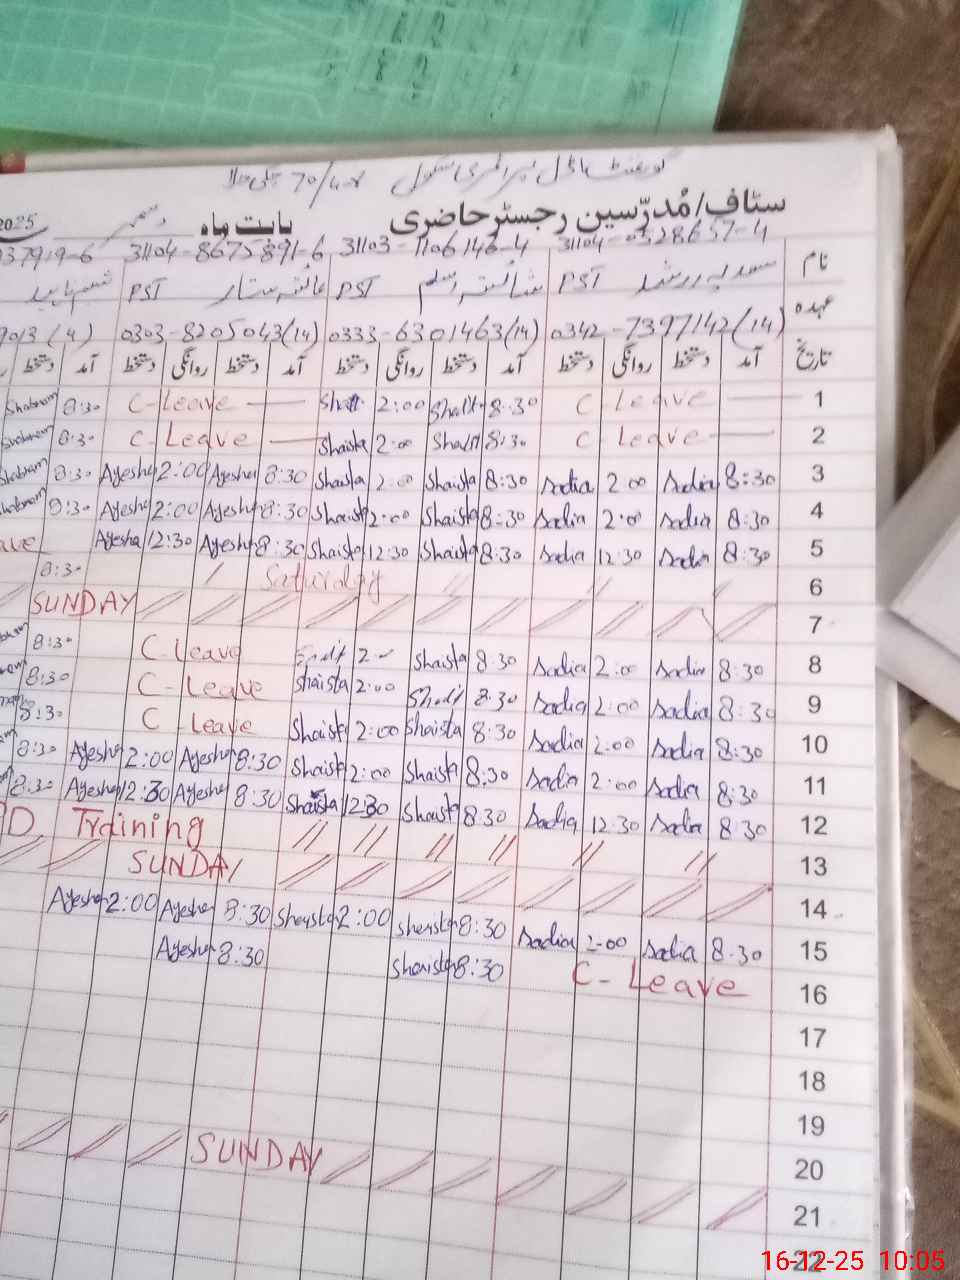 گورنمنٹ ماڈل پرائمری سکول 70/4-R
سٹاف/مُدرّسین رجسٹر حاضری بابت ماہ دسمبر 2025
31104-0328657-4 31103-1106146-4 31104-8675891-6 37919-6
نام سعدیہ رشد PST شائستہ اسلم PST عائشہ ستار PST
عہدہ 0342-7397142(14) 0333-6301463(14) 0303-8205043(14) 9013(4)
تاریخ آمد دستخط روانگی دستخط آمد دستخط روانگی دستخط آمد دستخط روانگی دستخط آمد دستخط
1 C Leave 8:30 2:00 C-Leave 8:30 Shabnam
2 C Leave 8:30 2:00 Shaista C-Leave 8:30 Shabnam
3 8:30 Sadia 2:00 Sadia 8:30 Shaista 2:00 Shaista 8:30 Ayesha 2:00 Ayesha 8:30 Shabnam
4 8:30 Sadia 2:00 Sadia 8:30 Shaista 2:00 Shaista 8:30 Ayesha 2:00 Ayesha 8:30 Shabnam
5 8:30 Sadia 12:30 Sadia 8:30 Shaista 12:30 Shaista 8:30 Ayesha 12:30 Ayesha
6 Saturday 8:30
7 SUNDAY
8 8:30 Sadia 2:00 Sadia 8:30 Shaista 2:00 C-Leave 8:30
9 8:30 Sadia 2:00 Sadia 8:30 2:00 Shaista C-Leave 8:30
10 8:30 Sadia 2:00 Sadia 8:30 Shaista 2:00 Shaista C Leave 8:30
11 8:30 Sadia 2:00 Sadia 8:30 Shaista 2:00 Shaista 8:30 Ayesha 2:00 Ayesha 8:30
12 8:30 Sadia 12:30 Sadia 8:30 Shaista 12:30 Shaista 8:30 Ayesha 12:30 Ayesha 8:30
13 Training
14 SUNDAY
15 8:30 Sadia 2:00 Sadia 8:30 Shaista 2:00 Shaista 8:30 Ayesha 2:00 Ayesha
16 C-Leave 8:30 Shaista 8:30 Ayesha
17
18
19
20
21 SUNDAY
22
16-12-25 10:05